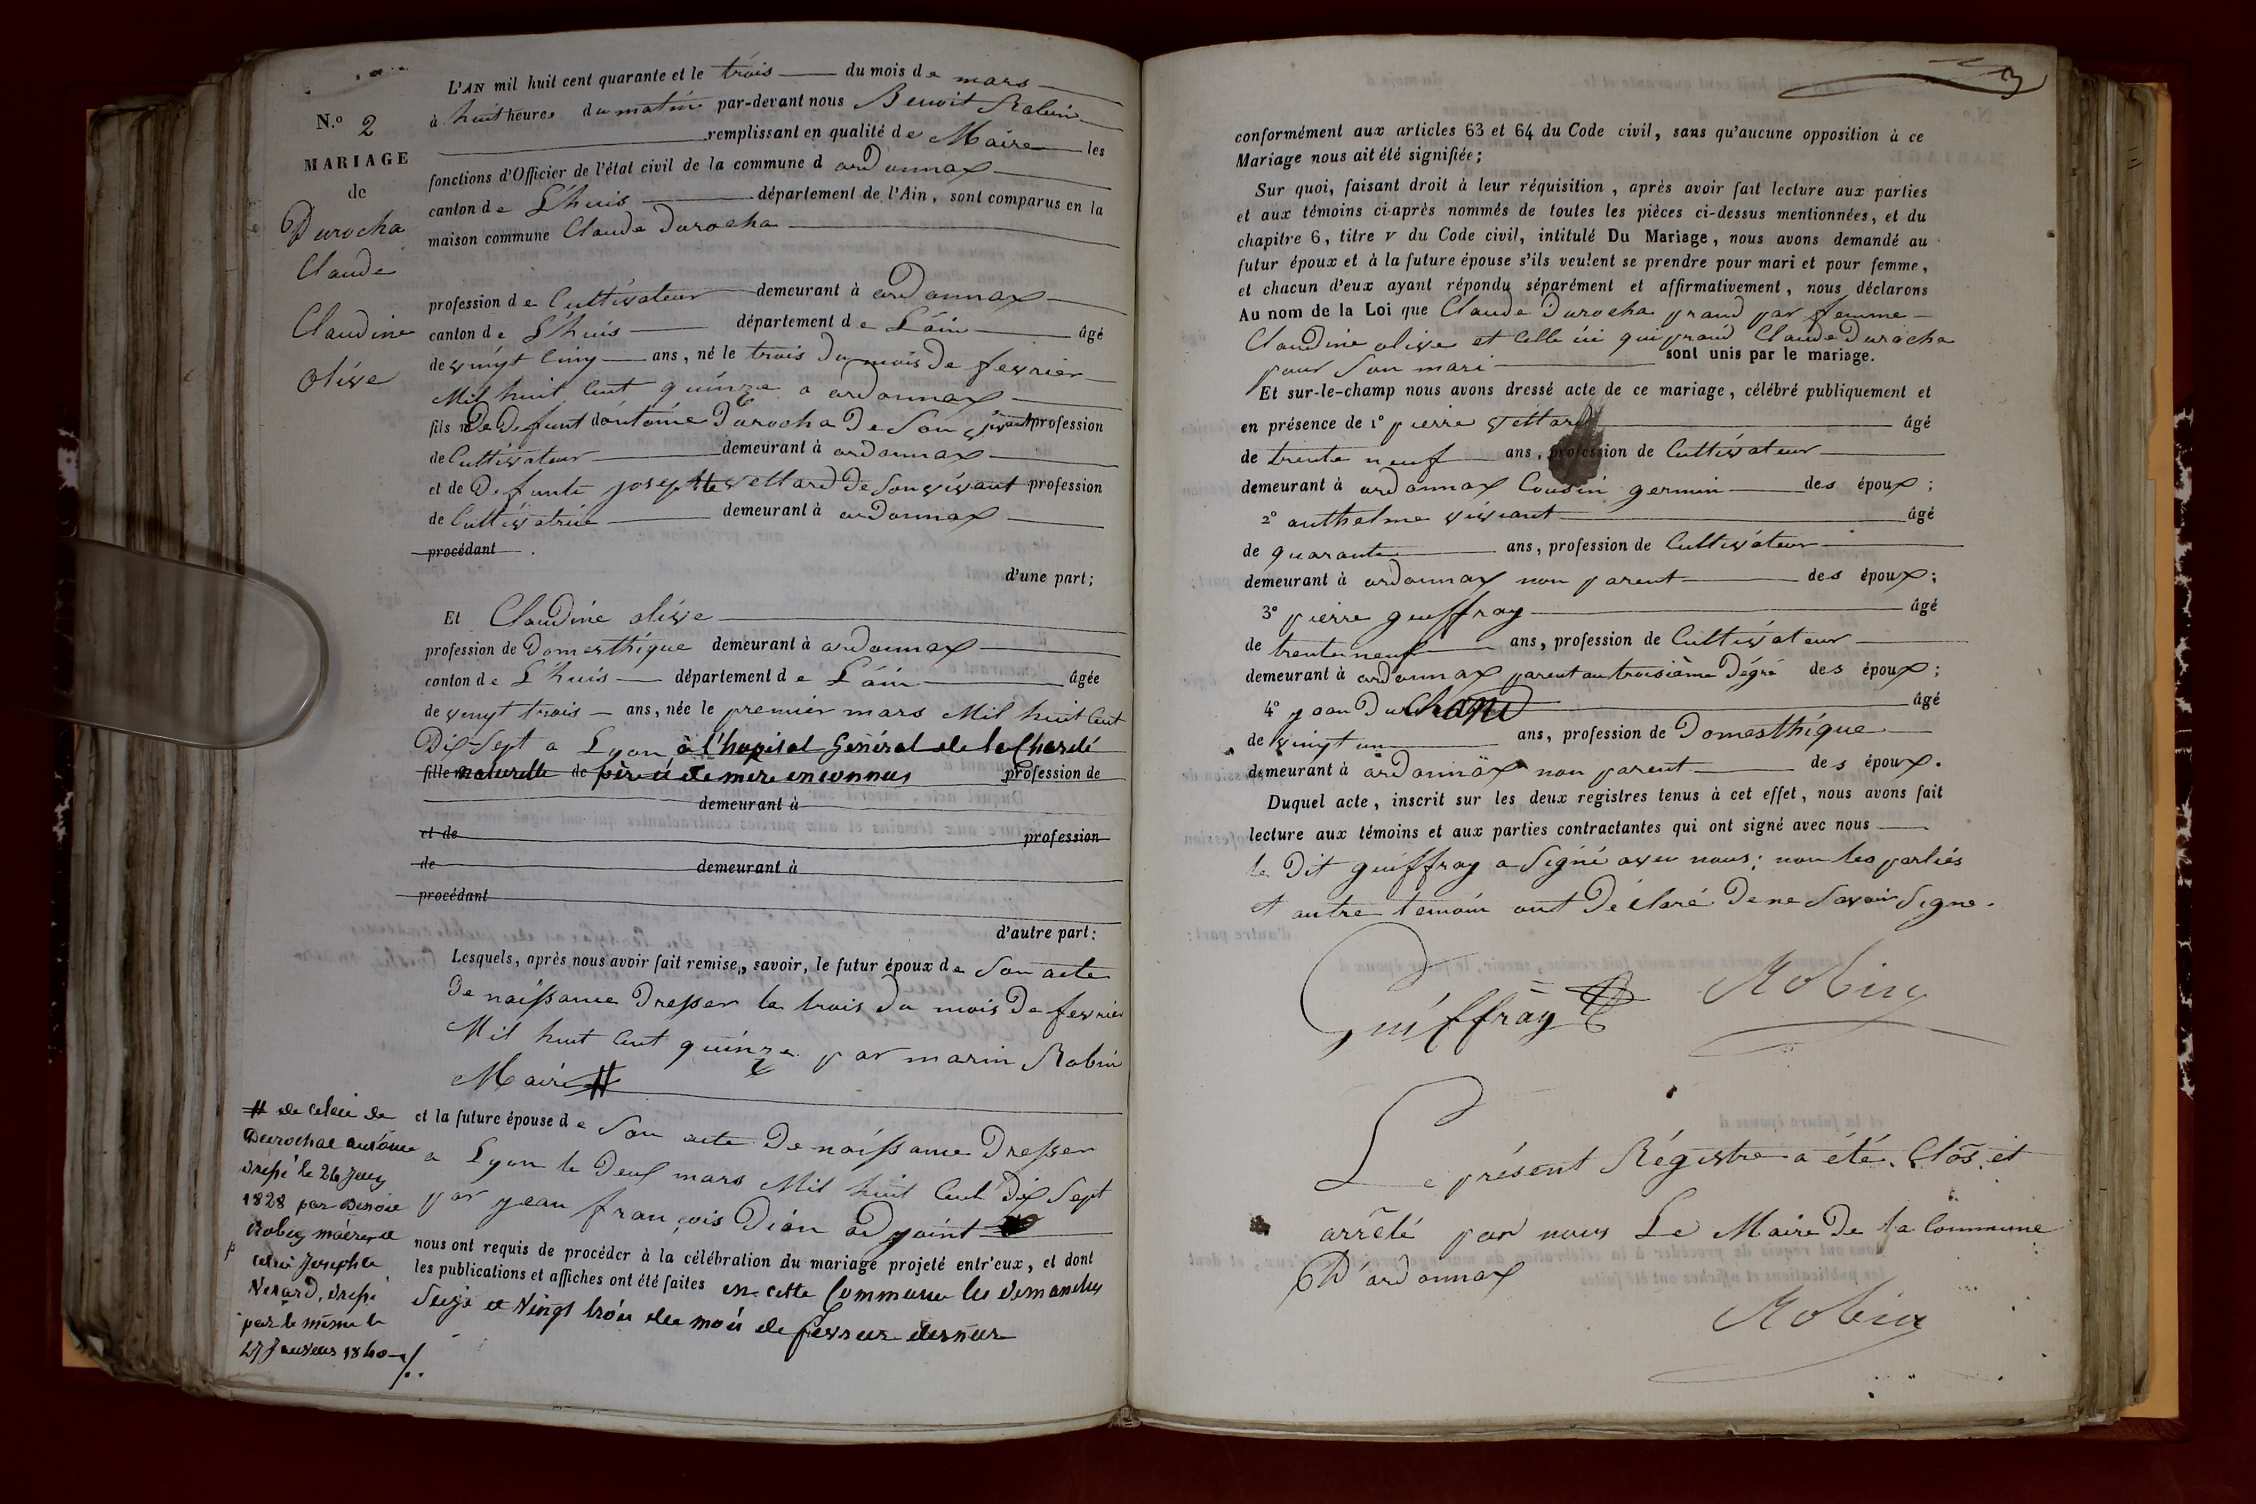 N.º 2
MARIAGE
de
Durocha
Claude
Claudine
Olive
L'AN mil huit cent quarante et le trois du mois de mars
à huit heures du matin par-devant nous Benoit Robin
remplissant en qualité de Maire les
fonctions d'Officier de l'état civil de la commune d ardonnax
canton de L'huis département de l'Ain, sont comparus en la
maison commune Claude Durocha
profession de Cultivateur demeurant à ardonnax
canton de L'huis département de L'ain âgé
de vingt cinq ans, né le trois du mois de fevrier
Mil huit Cent quinze a ardonnax
fils De Defunt dantoine Durocha De Son vivant profession
de Cultivateur demeurant à ardonnax
et de Defunte josephte vettard De Son vivant profession
de Cultivatrice demeurant à ardonnax
procédant
d'une part;
Et Claudine olive
profession de Domesthique demeurant à ardonnax
canton de L'huis département de L'ain âgée
de vingt trois ans, née le premier mars Mil huit Cent
Dix Sept a Lyon à l'hopital Général de la Charité
fille naturelle de père et de mere inconnus profession de
demeurant à
et de profession
de demeurant à
procédant
d'autre part:
Lesquels, après nous avoir fait remise, savoir, le futur époux de Son acte
De naissance Dresser le trois du mois De fevrier
Mil huit Cent quinze par marin Robin
Maire #
et la future épouse de Son acte De naissance Dresser
a Lyon le Deux mars Mil huit Cent Dix Sept
par jean françois Dian adjoint
nous ont requis de procéder à la célébration du mariage projeté entr'eux, et dont
les publications et affiches ont été faites en cette Commune les dimanches
Seize et Vingt trois du mois de fevrier dernier
# de celui de
Durochat antoine
dressé le 26 juin
1828 par Benoit
Robin maire et
celui Josephte
Vetard, dressé
par le même le
27 Janvier 1840
3
conformément aux articles 63 et 64 du Code civil, sans qu'aucune opposition à ce
Mariage nous ait été signifiée;
Sur quoi, faisant droit à leur réquisition, après avoir fait lecture aux parties
et aux témoins ci-après nommés de toutes les pièces ci-dessus mentionnées, et du
chapitre 6, titre v du Code civil, intitulé Du Mariage, nous avons demandé au
futur époux et à la future épouse s'ils veulent se prendre pour mari et pour femme,
et chacun d'eux ayant répondu séparément et affirmativement, nous déclarons
Au nom de la Loi que Claude Durocha prand par femme
Claudine olive et Celle ici qui prand Claude Durocha
pour Son mari sont unis par le mariage.
Et sur-le-champ nous avons dressé acte de ce mariage, célébré publiquement et
en présence de 1º pierre vettard âgé
de trente neuf ans, profession de Cultivateur
demeurant à ardonnax Cousin germin des époux;
2º anthelme vivant âgé
de quarante ans, profession de Cultivateur
demeurant à ardonnax non parent des époux;
3º pierre guiffray âgé
de trente neuf ans, profession de Cultivateur
demeurant à ardonnax parent au troisième Dégré des époux;
4º jean Duchand âgé
de vingt un ans, profession de Domesthique
demeurant à ardonnax non parent des époux.
Duquel acte, inscrit sur les deux registres tenus à cet effet, nous avons fait
lecture aux témoins et aux parties contractantes qui ont signé avec nous
le Dit guiffray a Signé avec nous; non les partiés
et autre temoin ont Déclaré De ne Savoir Signe.
Guiffray Robin
Le présent Régistre a été Clos et
arrêté par nous Le Maire De la Commune
D'ardonnax
Robin